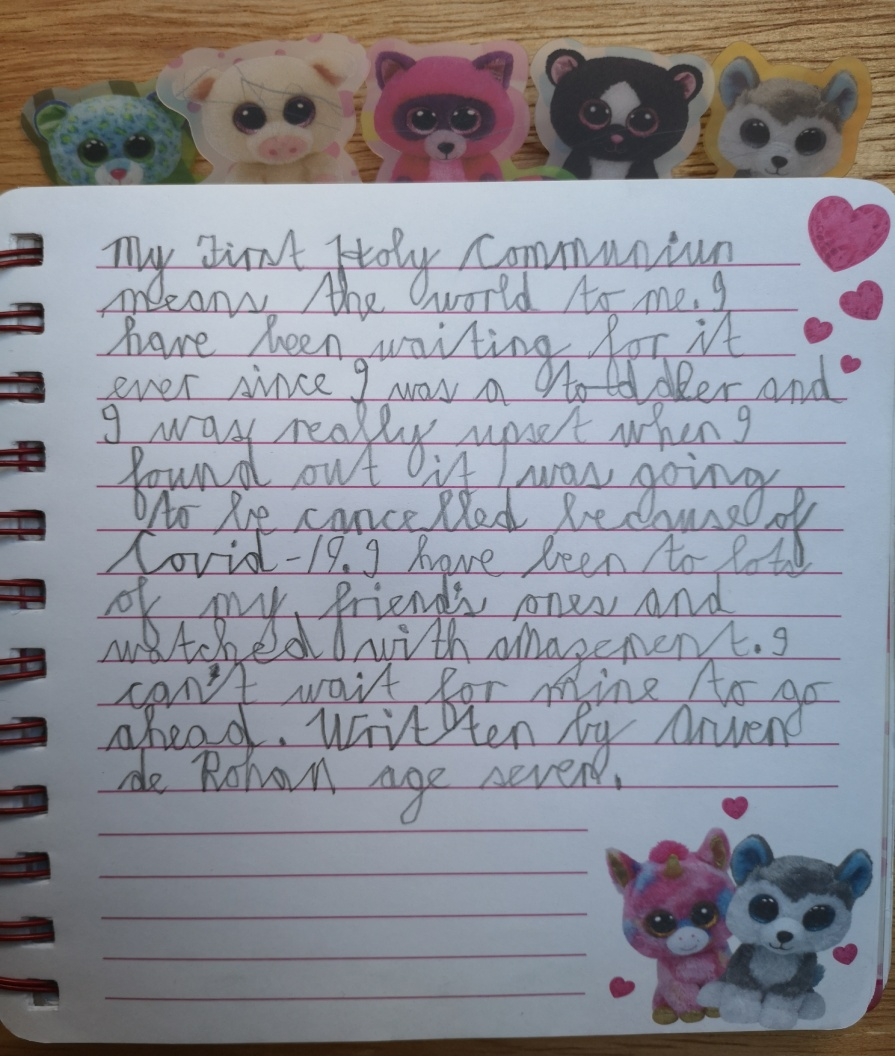 My First Holy Communiun
means the world to me. I
have been waiting for it
ever since I was a toddler and
I was really upset when I
found out it was going
to be cancelled because of
Covid-19. I have been to lots
of my friend's ones and
watched with amazement. I
can't wait for mine to go
ahead. Written by Arwen
de Rohan age seven.